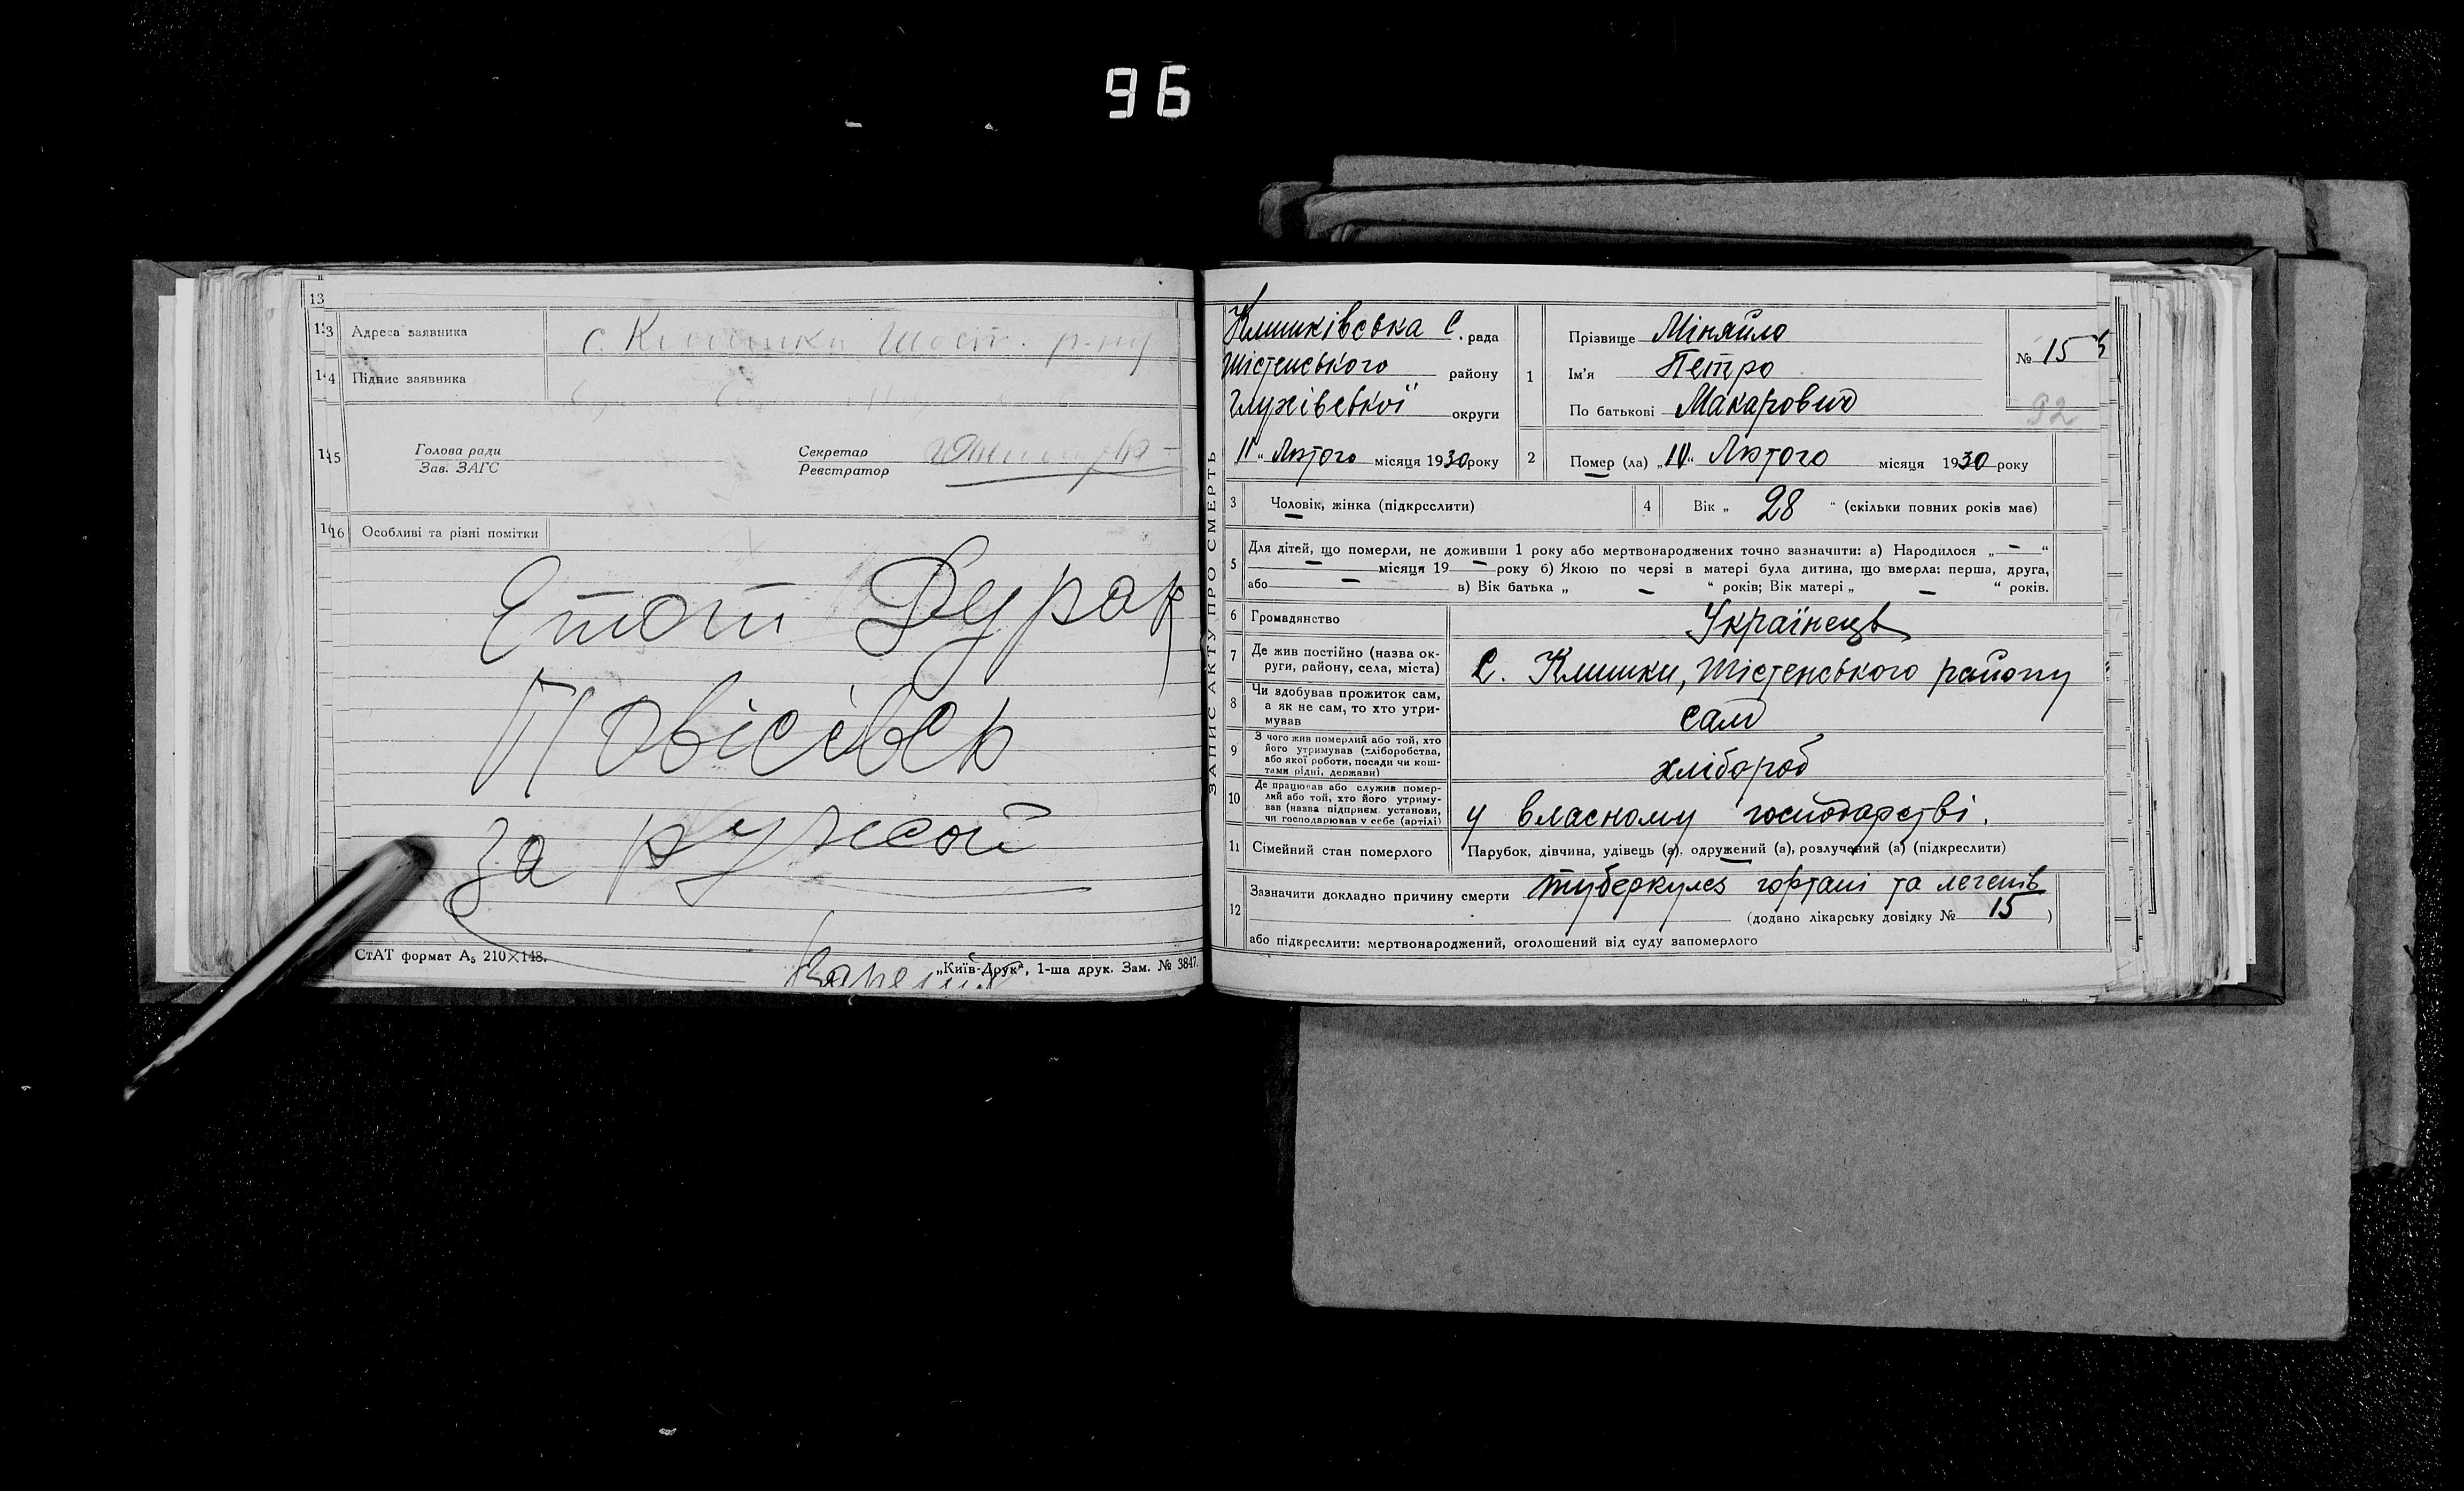 96
13
13 Адреса заявника с. Клишки Шост. р-ну
14 Підпис заявника
15 Голова ради Секретар
Зав. ЗАГС Реєстратор
16 Особливі та різні помітки
Етот Дурак
Повісівсь
за
СтАТ формат А₅ 210×148.
„Київ-Друк“, 1-ша друк. Зам. № 3847.
ЗАПИС АКТУ ПРО СМЕРТЬ
Клишківська С. рада
Шістенського району
Глухівської округи
„11“ Лютого місяця 1930 року
1 Прізвище Міняйло
Ім'я Петро
По батькові Макарович
№ 15
92
2 Помер (ла) „10“ Лютого місяця 1930 року
3 Чоловік, жінка (підкреслити)
4 Вік „ 28 “ (скільки повних років має)
5 Для дітей, що померли, не доживши 1 року або мертвонароджених точно зазначити: а) Народилося „ — “
— місяця 19 — року б) Якою по черзі в матері була дитина, що вмерла: перша, друга,
або — в) Вік батька „ — “ років; Вік матері „ — “ років.
6 Громадянство Українець
7 Де жив постійно (назва округи, району, села, міста) С. Клишки, Шістенського району
8 Чи здобував прожиток сам, а як не сам, то хто утримував сам
9 З чого жив померлий або той, хто його утримував (хліборобства, або якої роботи, посади чи коштами рідні, держави) хлібороб
10 Де працював або служив померлий або той, хто його утримував (назва підприєм. установи, чи господарював у себе (артілі) у власному господарстві.
11 Сімейний стан померлого Парубок, дівчина, удівець (а), одружений (а), розлучений (а) (підкреслити)
12 Зазначити докладно причину смерти туберкулез гортані та легенів
(додано лікарську довідку № 15 )
або підкреслити: мертвонароджений, оголошений від суду запомерлого